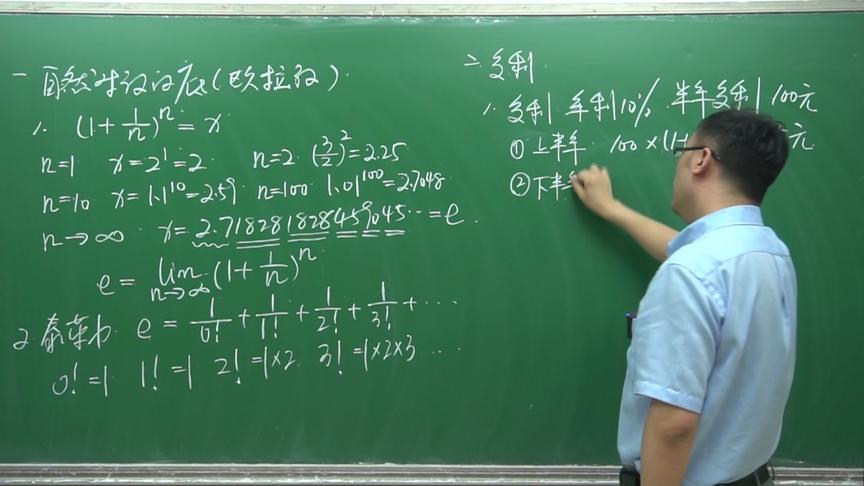 一 自然对数的底(欧拉数).
1. (1+1/n)^n = x
n=1 x=2^1=2. n=2 (3/2)^2=2.25
n=10 x=1.1^10=2.59 n=100 1.01^100=2.7048
n→∞ x=2.718281828459045…=e.
e = lim n→∞ (1+1/n)^n
2. 泰勒 e = 1/0! + 1/1! + 1/2! + 1/3! + …
0!=1 1!=1 2!=1×2 3!=1×2×3 …
二、复利.
1. 复利 年利10% 半年复利 100元
① 上半年 100×(1+ 元
② 下半